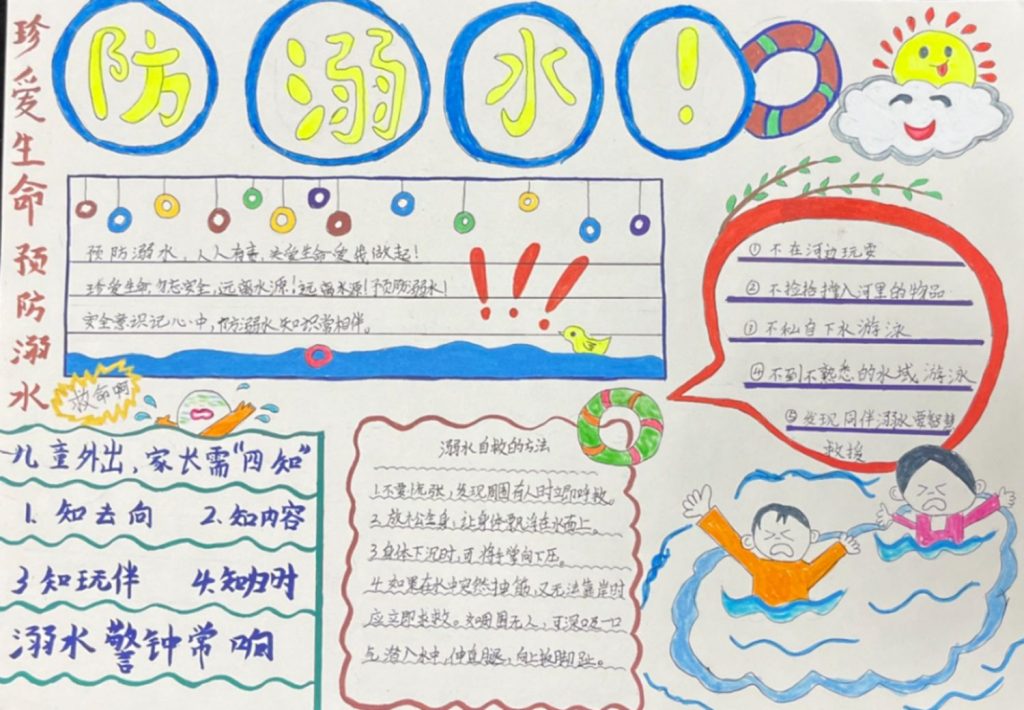 防溺水!
珍爱生命预防溺水
预防溺水,人人有责,关爱生命爱我做起!
珍爱生命勿忘安全,远离水源!远离水源!预防溺水!
安全意识记心中,防溺水知识常相伴。
①不在河边玩耍
②不捡拾掉入河里的物品
③不私自下水游泳
④不到不熟悉的水域游泳
⑤发现同伴溺水要智慧
救援
救命啊
儿童外出,家长需“四知”
1. 知去向 2. 知内容
3 知玩伴 4. 知归时
溺水警钟常响
溺水自救的方法
1.不要慌张,发现周围有人时立即呼救。
2.放松全身,让身体飘浮在水面上。
3.身体下沉时,可将手掌向下压。
4.如果在水中突然抽筋,又无法靠岸时
应立即求救。如周围无人,可深吸一口
气潜入水中,伸直腿,向上扳脚趾。